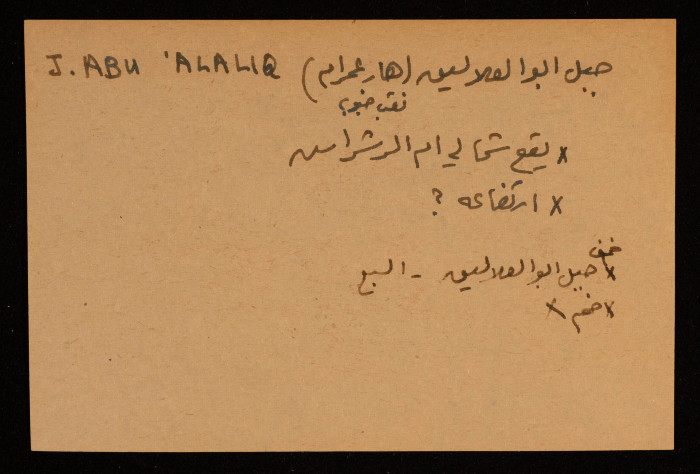 J. ABU 'ALALIQ جبل ابو العلاليق (هار عمرام)
نقب جنوبي
x يقع شمالي ام الرشراش
x ارتفاعه ؟
x جبل ابو العلاليق - السبع
x x